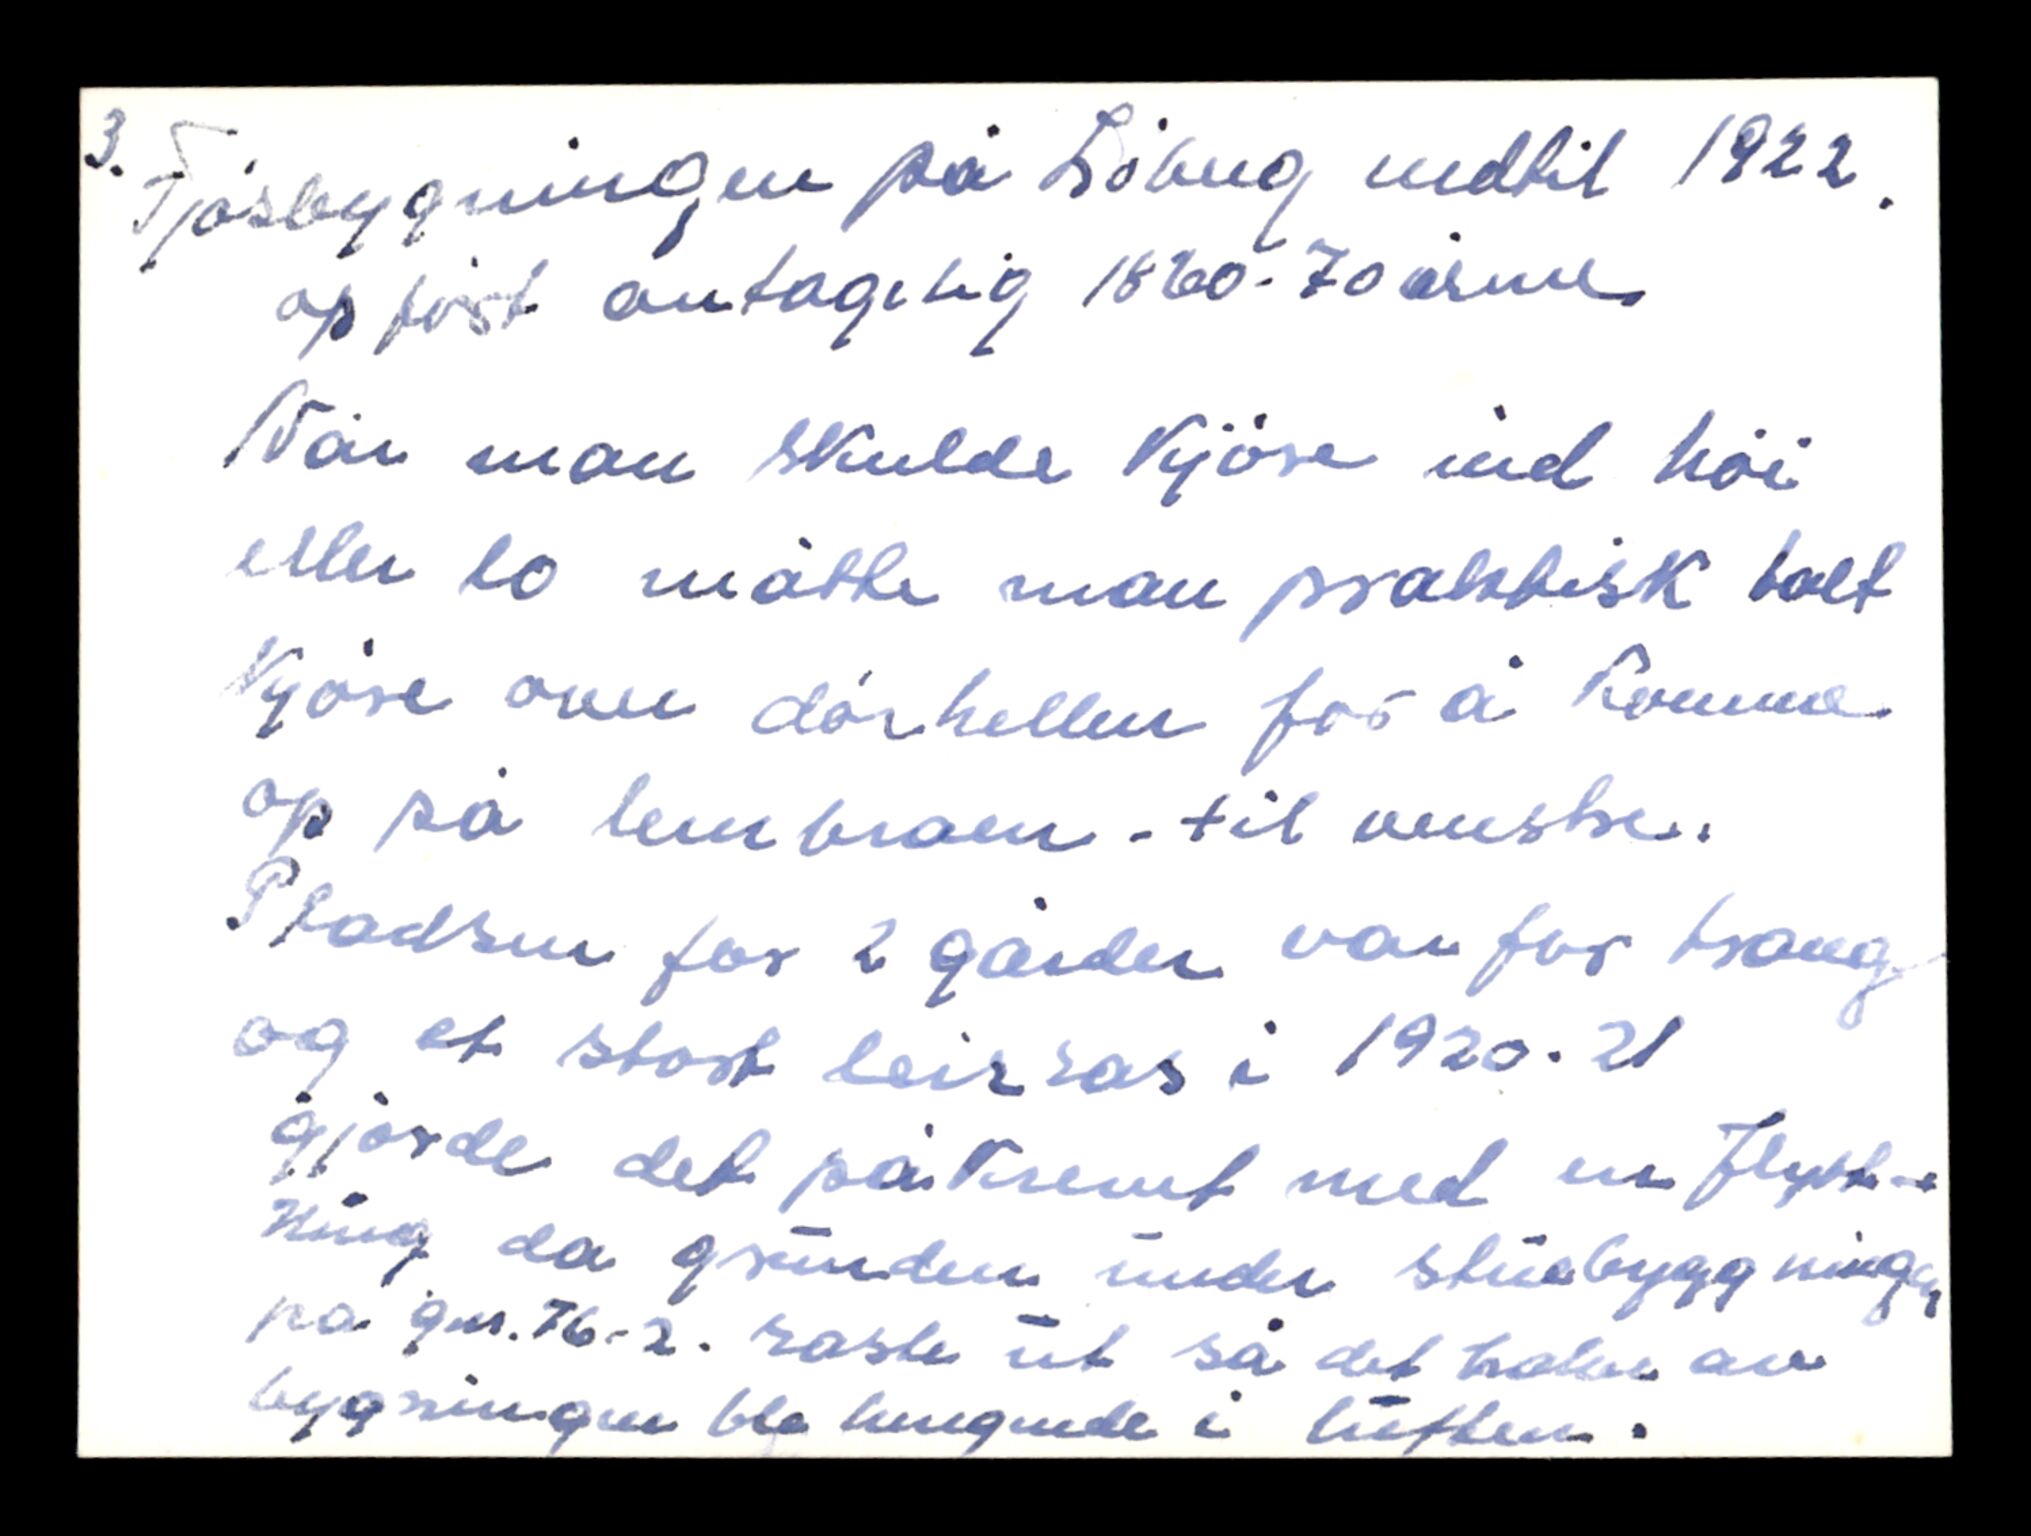 3. Fjøsbygningen på Liberg indtil 1922.
opført antagelig 1860-70 årene
Når man skulde kjøre ind høi
eller lo måtte man praktisk talt
kjøre over dørhellen for å komme
op på lembroen - til venstre.
Pladsen for 2 gårder var for trang
og et stort leirras i 1920-21
gjorde det påkrevet med en flytt-
ning da grunden under stuebyggningen
på gnr. 76-2. raste ut så det halve av
bygningen ble hengende i luften.